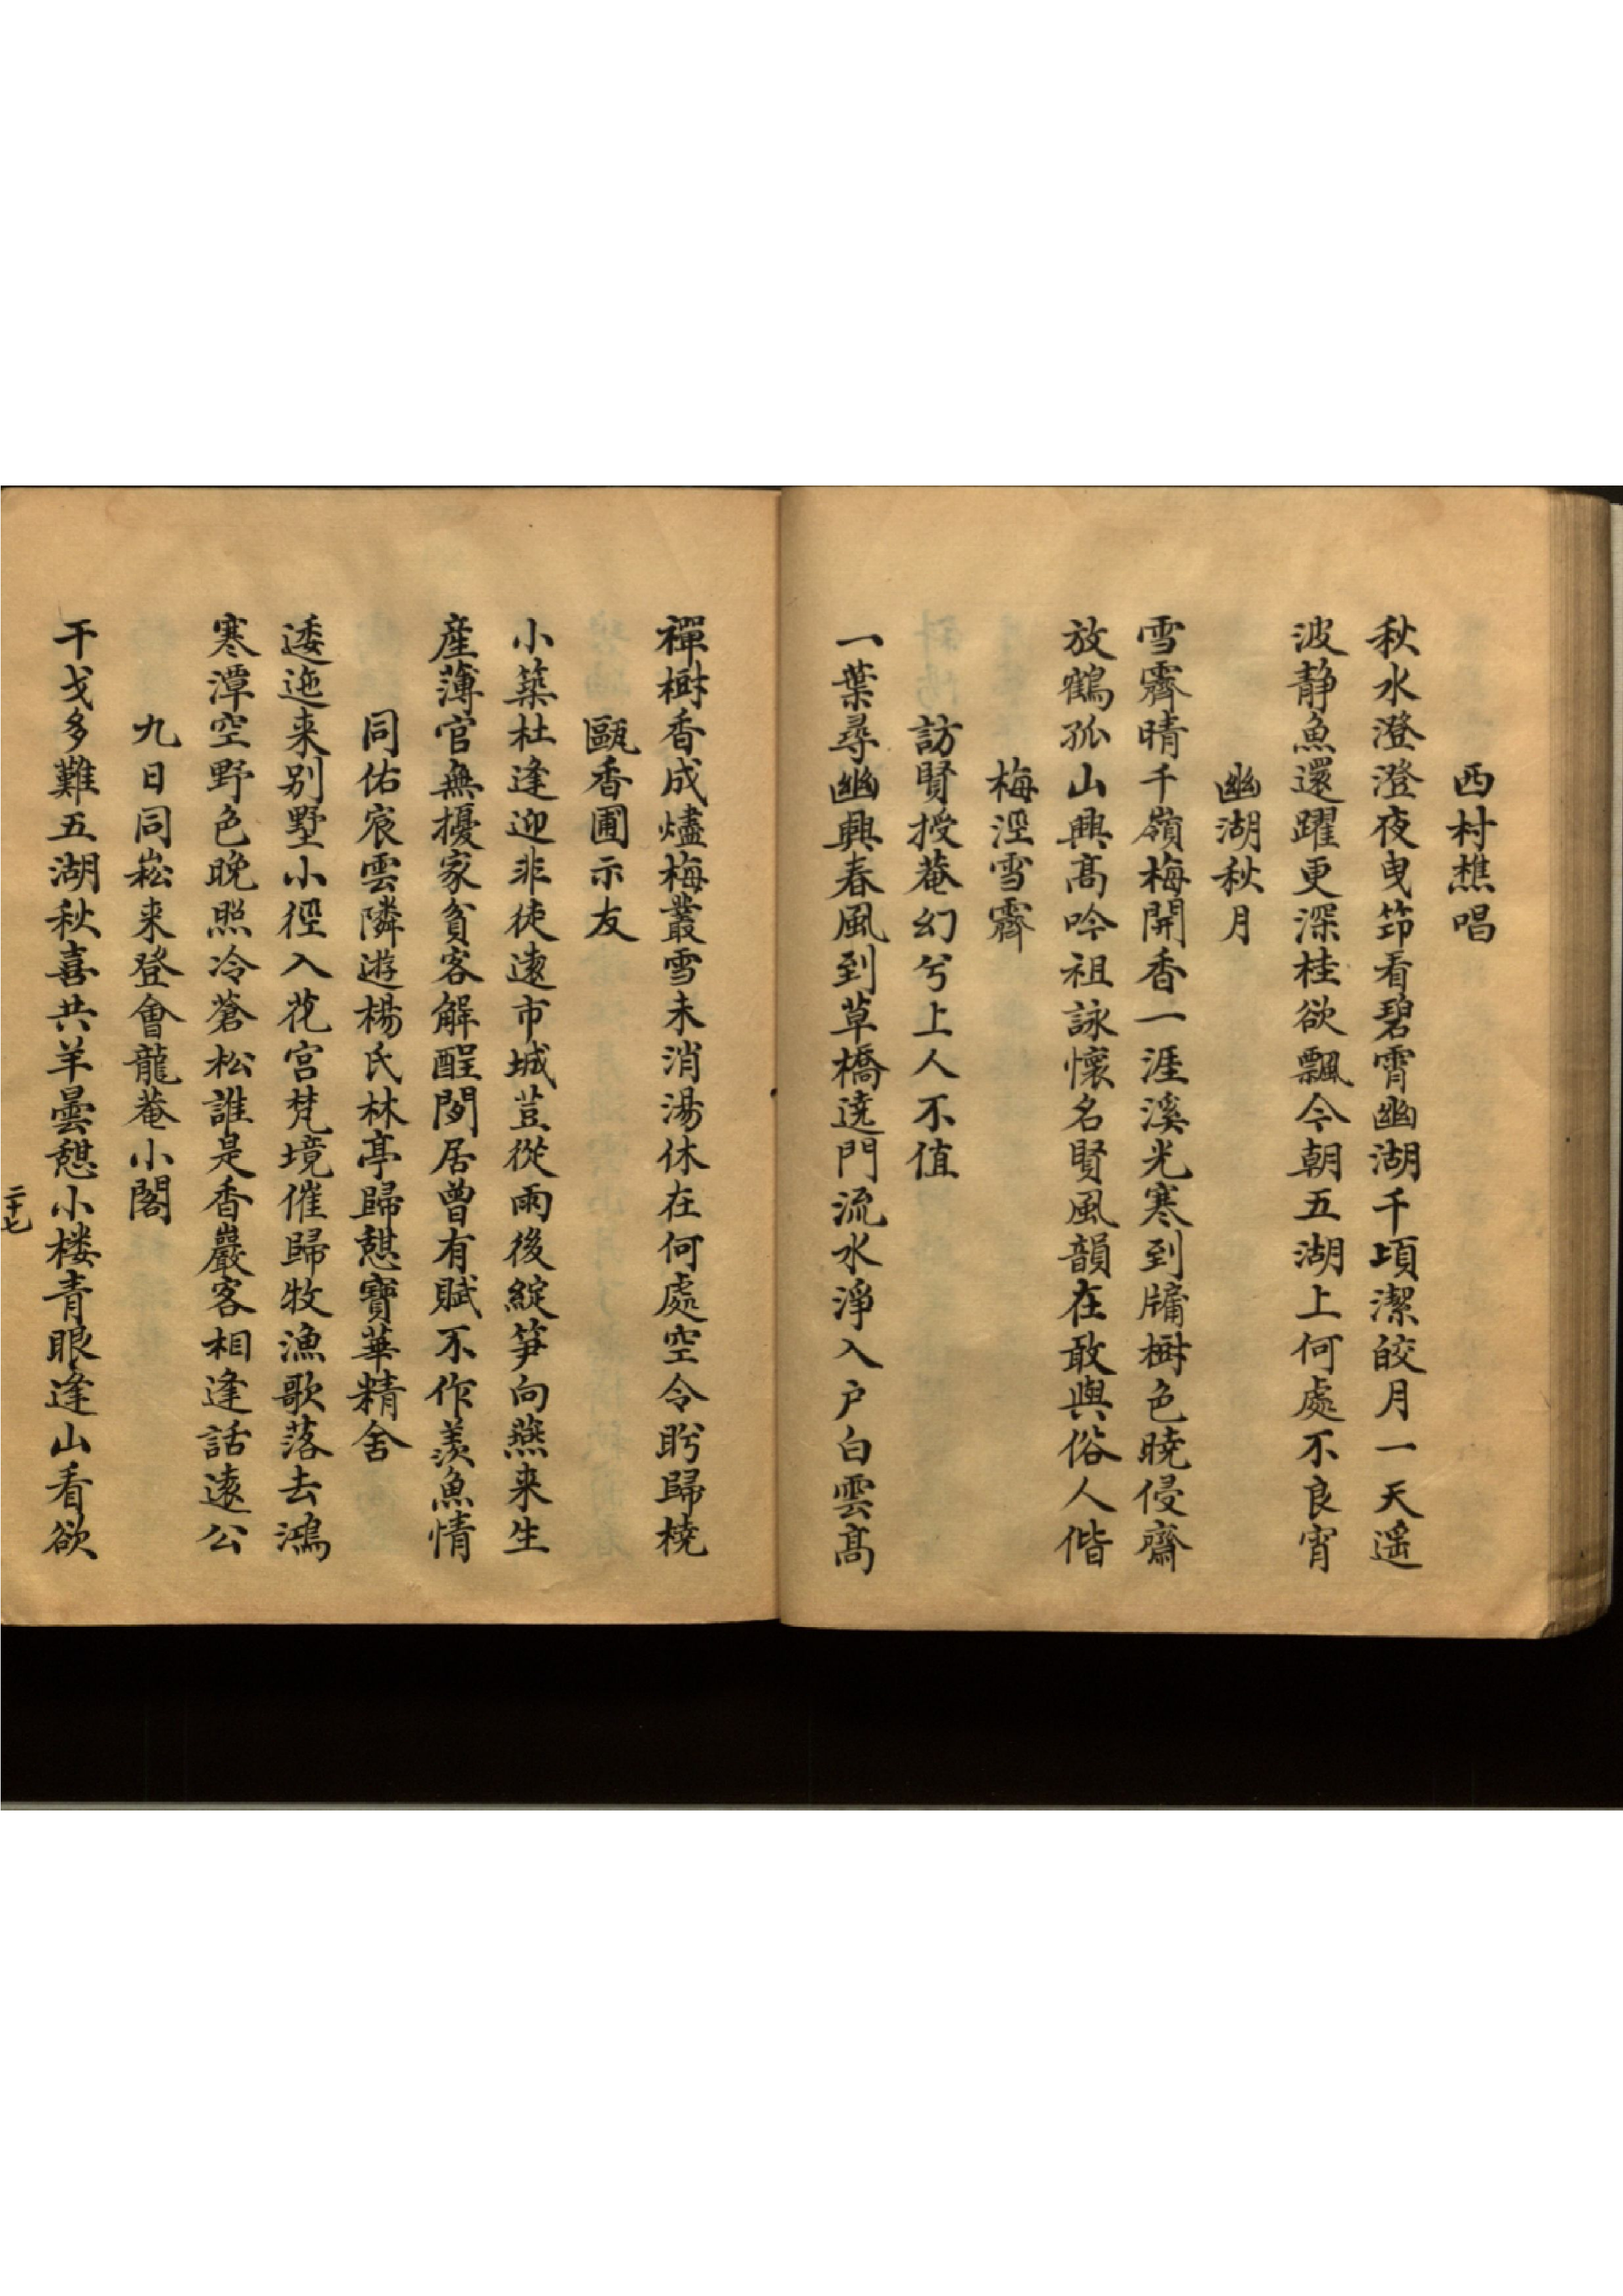 西村樵唱
秋水澄澄夜曳笻看碧霄幽湖千頃潔皎月一天遥
波静魚還躍更深桂欲飄今朝五湖上何處不良宵
幽湖秋月
雪霽晴千嶺梅開香一涯溪光寒到牗樹色曉侵齋
放鶴孤山興髙吟祖詠懷名賢風韻在敢與俗人偕
梅涇雪霽
訪賢授菴幻兮上人不值
一葉尋幽興春風到草橋遶門流水淨入户白雲髙
禪樹香成燼梅叢雪未消湯休在何處空令盼歸橈
甌香圃示友
小築杜逢迎非徒遠市城荳從雨後綻笋向燕来生
産薄官無擾家貧客解酲閒居曾有賦不作羨魚情
同佑宸雲隣遊楊氏林亭歸憇寶華精舍
逶迤来别墅小徑入花宫梵境催歸牧漁歌落去鴻
寒潭空野色晚照冷蒼松誰是香巖客相逢話遠公
九日同崧来登會龍菴小閣
干戈多難五湖秋喜共羊曇憇小楼青眼逢山看欲
二十七